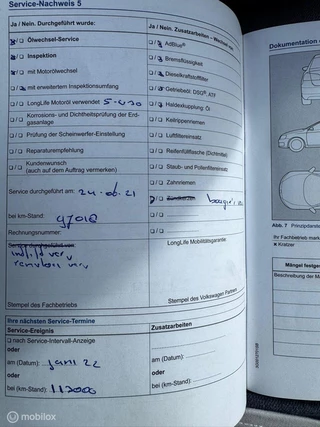 Service-Nachweis 5
Ja / Nein. Durchgeführt wurde:
Ölwechsel-Service
Inspektion
mit Motorölwechsel
mit erweitertem Inspektionsumfang
LongLife Motoröl verwendet 5-W30
Korrosions- und Dichtheitsprüfung der Erdgasanlage
Prüfung der Scheinwerfer-Einstellung
Reparaturempfehlung
Kundenwunsch
(auch auf dem Auftrag vermerken)
Service durchgeführt am:
bei km-Stand:
Rechnungsnummer:
Service durchgeführt von:
Stempel des Fachbetriebs
Ja / Nein. Zusatzarbeiten – Wechsel von
AdBlue®
Bremsflüssigkeit
Dieselkraftstofffilter
Getriebeöl: DSG®, ATF
Haldexkupplung: Öl
Keilrippenriemen
Luftfiltereinsatz
Reifenfüllflasche (Dichtmittel)
Staub- und Pollenfiltereinsatz
Zahnriemen
Zündkerzen
LongLife Mobilitätsgarantie:
Stempel des Volkswagen Partners
Ihre nächsten Service-Termine
Service-Ereignis
nach Service-Intervall-Anzeige
oder
am (Datum): jani 22
oder
bei (km-Stand): 112000
Zusatzarbeiten
am (Datum):
oder
bei (km-Stand):
Dokumentation
Abb. 7 Prinzipdarste
Ihr Fachbetrieb mark
Kratzer
Mängel festge
Beschreibung der Mä
mobilox